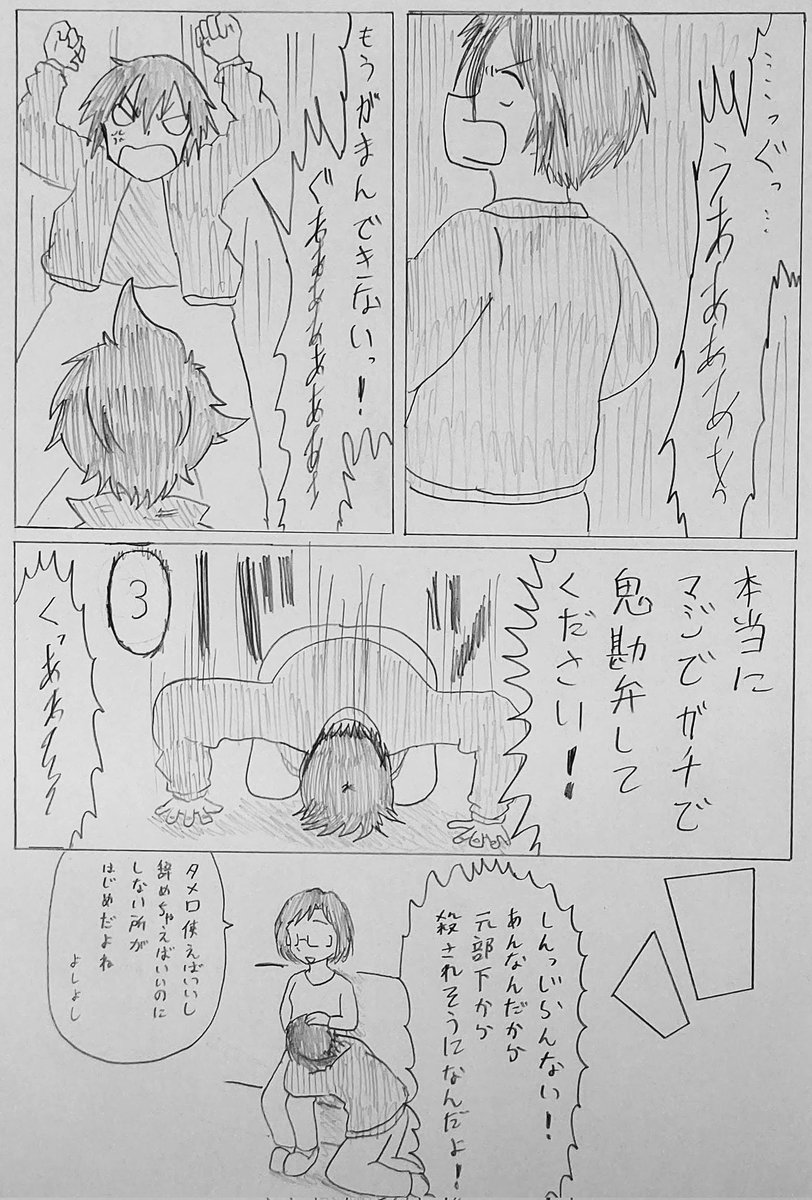 ……っぐっ…
うあああああぁ
もうがまんできないっ!
ぐああああああぁ
本当に
マジでガチで
鬼勘弁して
ください!
3
くっあああぁ
しんっじらんない!
あんなんだから
元部下から
殺されそうになんだよ!
タメ口使えばいいし
辞めちゃえばいいのに
しない所が
はじめだよね
よしよし